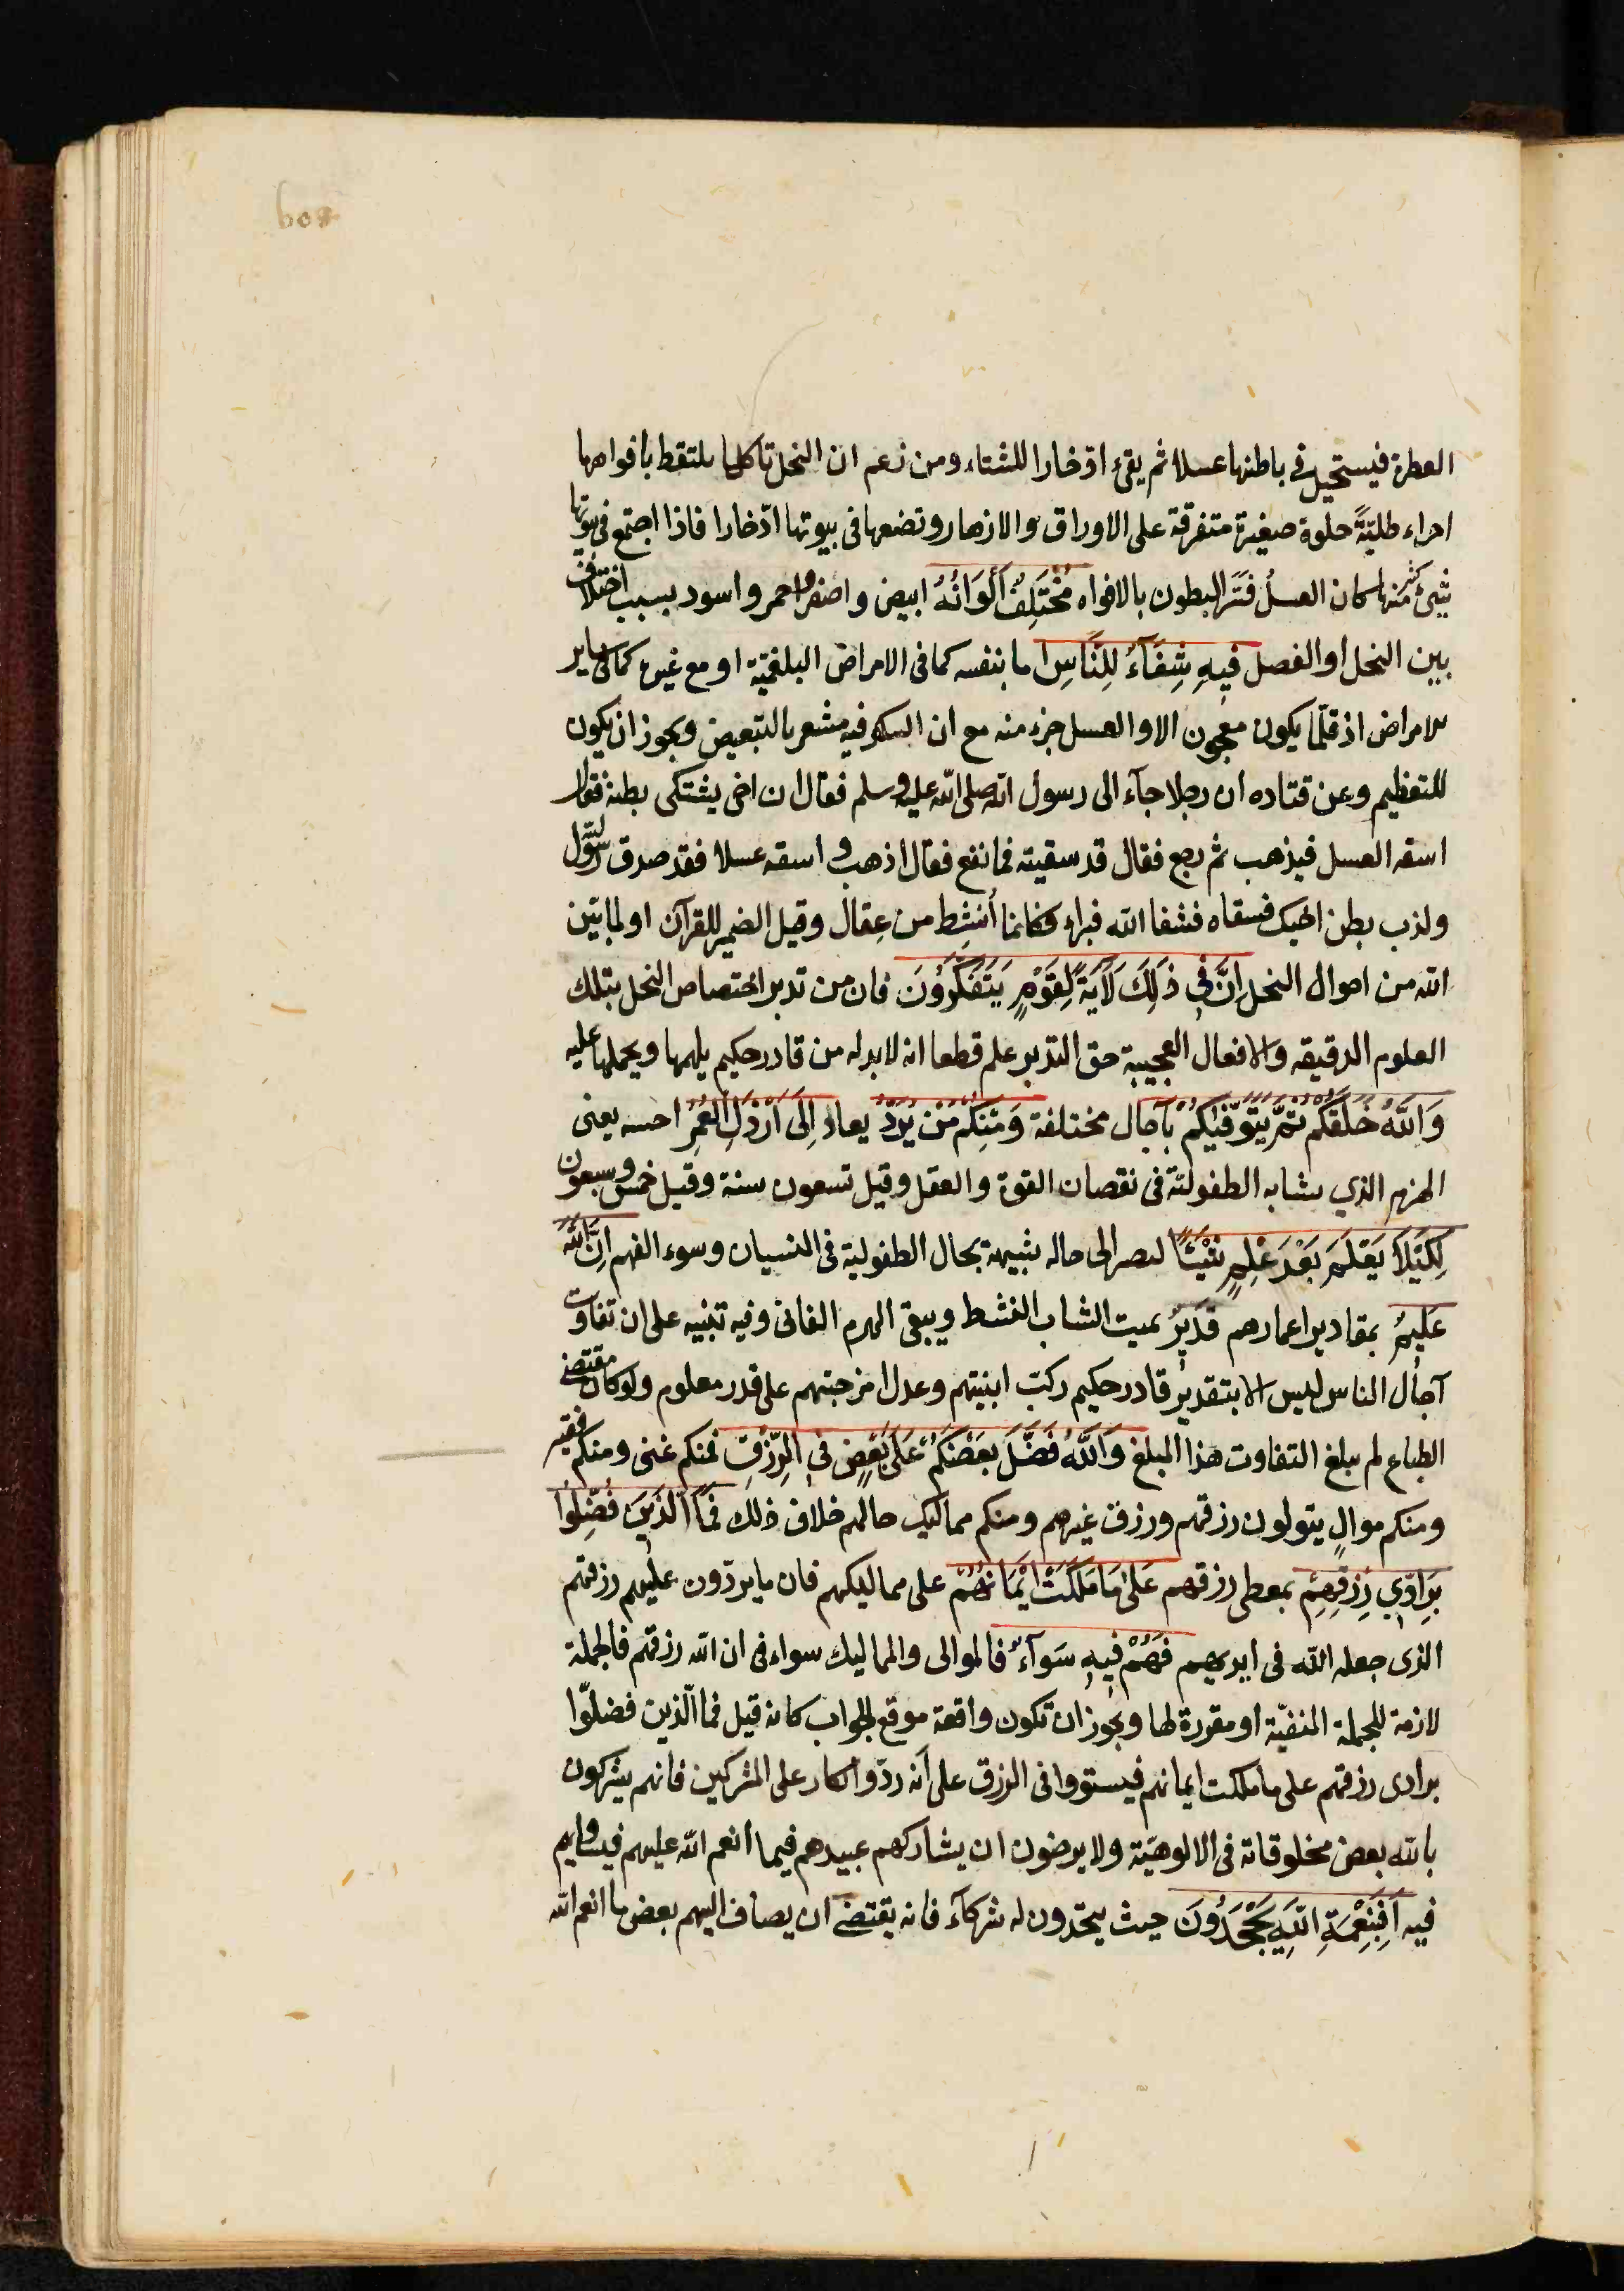 العطرة فيستحيل في باطنها عسلا ثم يقئ ادّخارا للشتاء ومن زعم ان النحل تاكلها بلتقط بافواهها
اجزاء طلّيّةً حلوة صغيرة متفرقة على الاوراق والازهار وتضعها في بيوتها ادّخارا فاذا اجتمع في بيوتها
شئ كثير منها كان العسلُ فسّر البطون بالافواه مُخْتَلِفٌ أَلْوَانُهُ ابيض واصفر واحمر واسود بسبب اختلاف
بين النحل او الفصل فيهِ شِفَآءٌ لِلنَّاسِ اما بنفسه كما في الامراض البلغميّة او مع غيره كما في ساير
الامراض اذ قلّما يكون معجون الا والعسل جزء منه مع ان التنكير فيه مشعر بالتبعيض ويجوز ان يكون
للتعظيم وعن قتاده ان رجلا جآء الى رسول الله صلى الله عليه وسلم فقال ان اخي يشتكى بطنه فقال
اسقه العسل فيذهب ثم رجع فقال قد سقيته فما نفع فقال اذهب واسقه عسلا فقد صدق الله
ولذب بطن اخيك فسقاه فشفا الله فبراء فكانما أُنشِط من عِقال وقيل الضمير للقرآن او لما بيّن
الله من احوال النحل اِنَّ في ذَلِكَ لَاَيَةً لِقَوْمٍ يَتَفَكَّرُونَ فان من تدبر اختصاص النحل بتلك
العلوم الدقيقه والافعال العجيبة حق التدبر علم قطعا انه لابد له من قادر حكيم يلهمها ويحملها عليه
وَاللَّهُ خَلَقَكُمْ ثُمَّ يَتَوَفّيٰكُمْ بآجال مختلفة وَمِنكُمْ مَنْ يُرَدُّ يعاد اِلَى اَرْذَلِ العُمُرِ اخسه يعنى
الهرم الذي يشابه الطفوليّة في نقصان القوة والعقل وقيل تسعون سنة وقيل خمس وسبعون
لِكَيْلَا يَعْلَمَ بَعْدَ عِلْمٍ شَيْئًا لىصىر الى حاله شبيهة بحال الطفولية في النسيان وسوء الفهم اِنَّ اللّٰهَ
عَلِيمٌ بمقادير اعمارهم قَدِيرٌ يميت الشاب النشط ويبقى الهرم الفانى وفيه تنبيه على ان تفاوت
آجال الناس ليس الا بتقدير قادر حكيم ركّب ابنيتهم وعدل امزجتهم على قدر معلوم ولو كان مقتضى
الطباع لم يبلغ التفاوت هذا المبلغ وَاللَّهُ فَضَّلَ بَعْضَكُمْ عَلَى بَعْضٍ في الرِّزْقِ فمنكم غنى ومنكم فقير
ومنكم موالٍ يتولون رزقهم ورزق غيرهم ومنكم مماليك حالهم خلاف ذلك فَمَا الَّذِينَ فُضِّلُوا
بِرَادِّي رِزْقِهِمْ بمعطى رزقهم عَلىٰ مَا مَلَكَتْ اَيْمَانُهُمْ على مماليكهم فان ما يردّون عليهم رزقهم
الذى جعله الله فى ايديهم فَهُمْ فيهِ سَوَآءٌ فالموالى والمماليك سواء فى ان الله رزقهم فالجملة
لازمة للجملة المنفيّة او مقررة لها ويجوز ان تكون واقعة موقع الجواب كانه قيل فما الّذين فضلّوا
برادى رزقهم على ما ملكت ايمانهم فيستووا فى الرزق على انه ردّ وانكار على المشركين فانهم يشركون
بالله بعض مخلوقاته فى الالوهيّة ولا يرضون ان يشاركهم عبيدهم فيما انعم الله عليهم فيساويهم
فيه اَفَبِنِعْمَةِ اللّهِ يَجْحَدُونَ حيث يتّخذون له شركآء فانه يقتضى ان يضاف اليهم بعض ما انعم الله